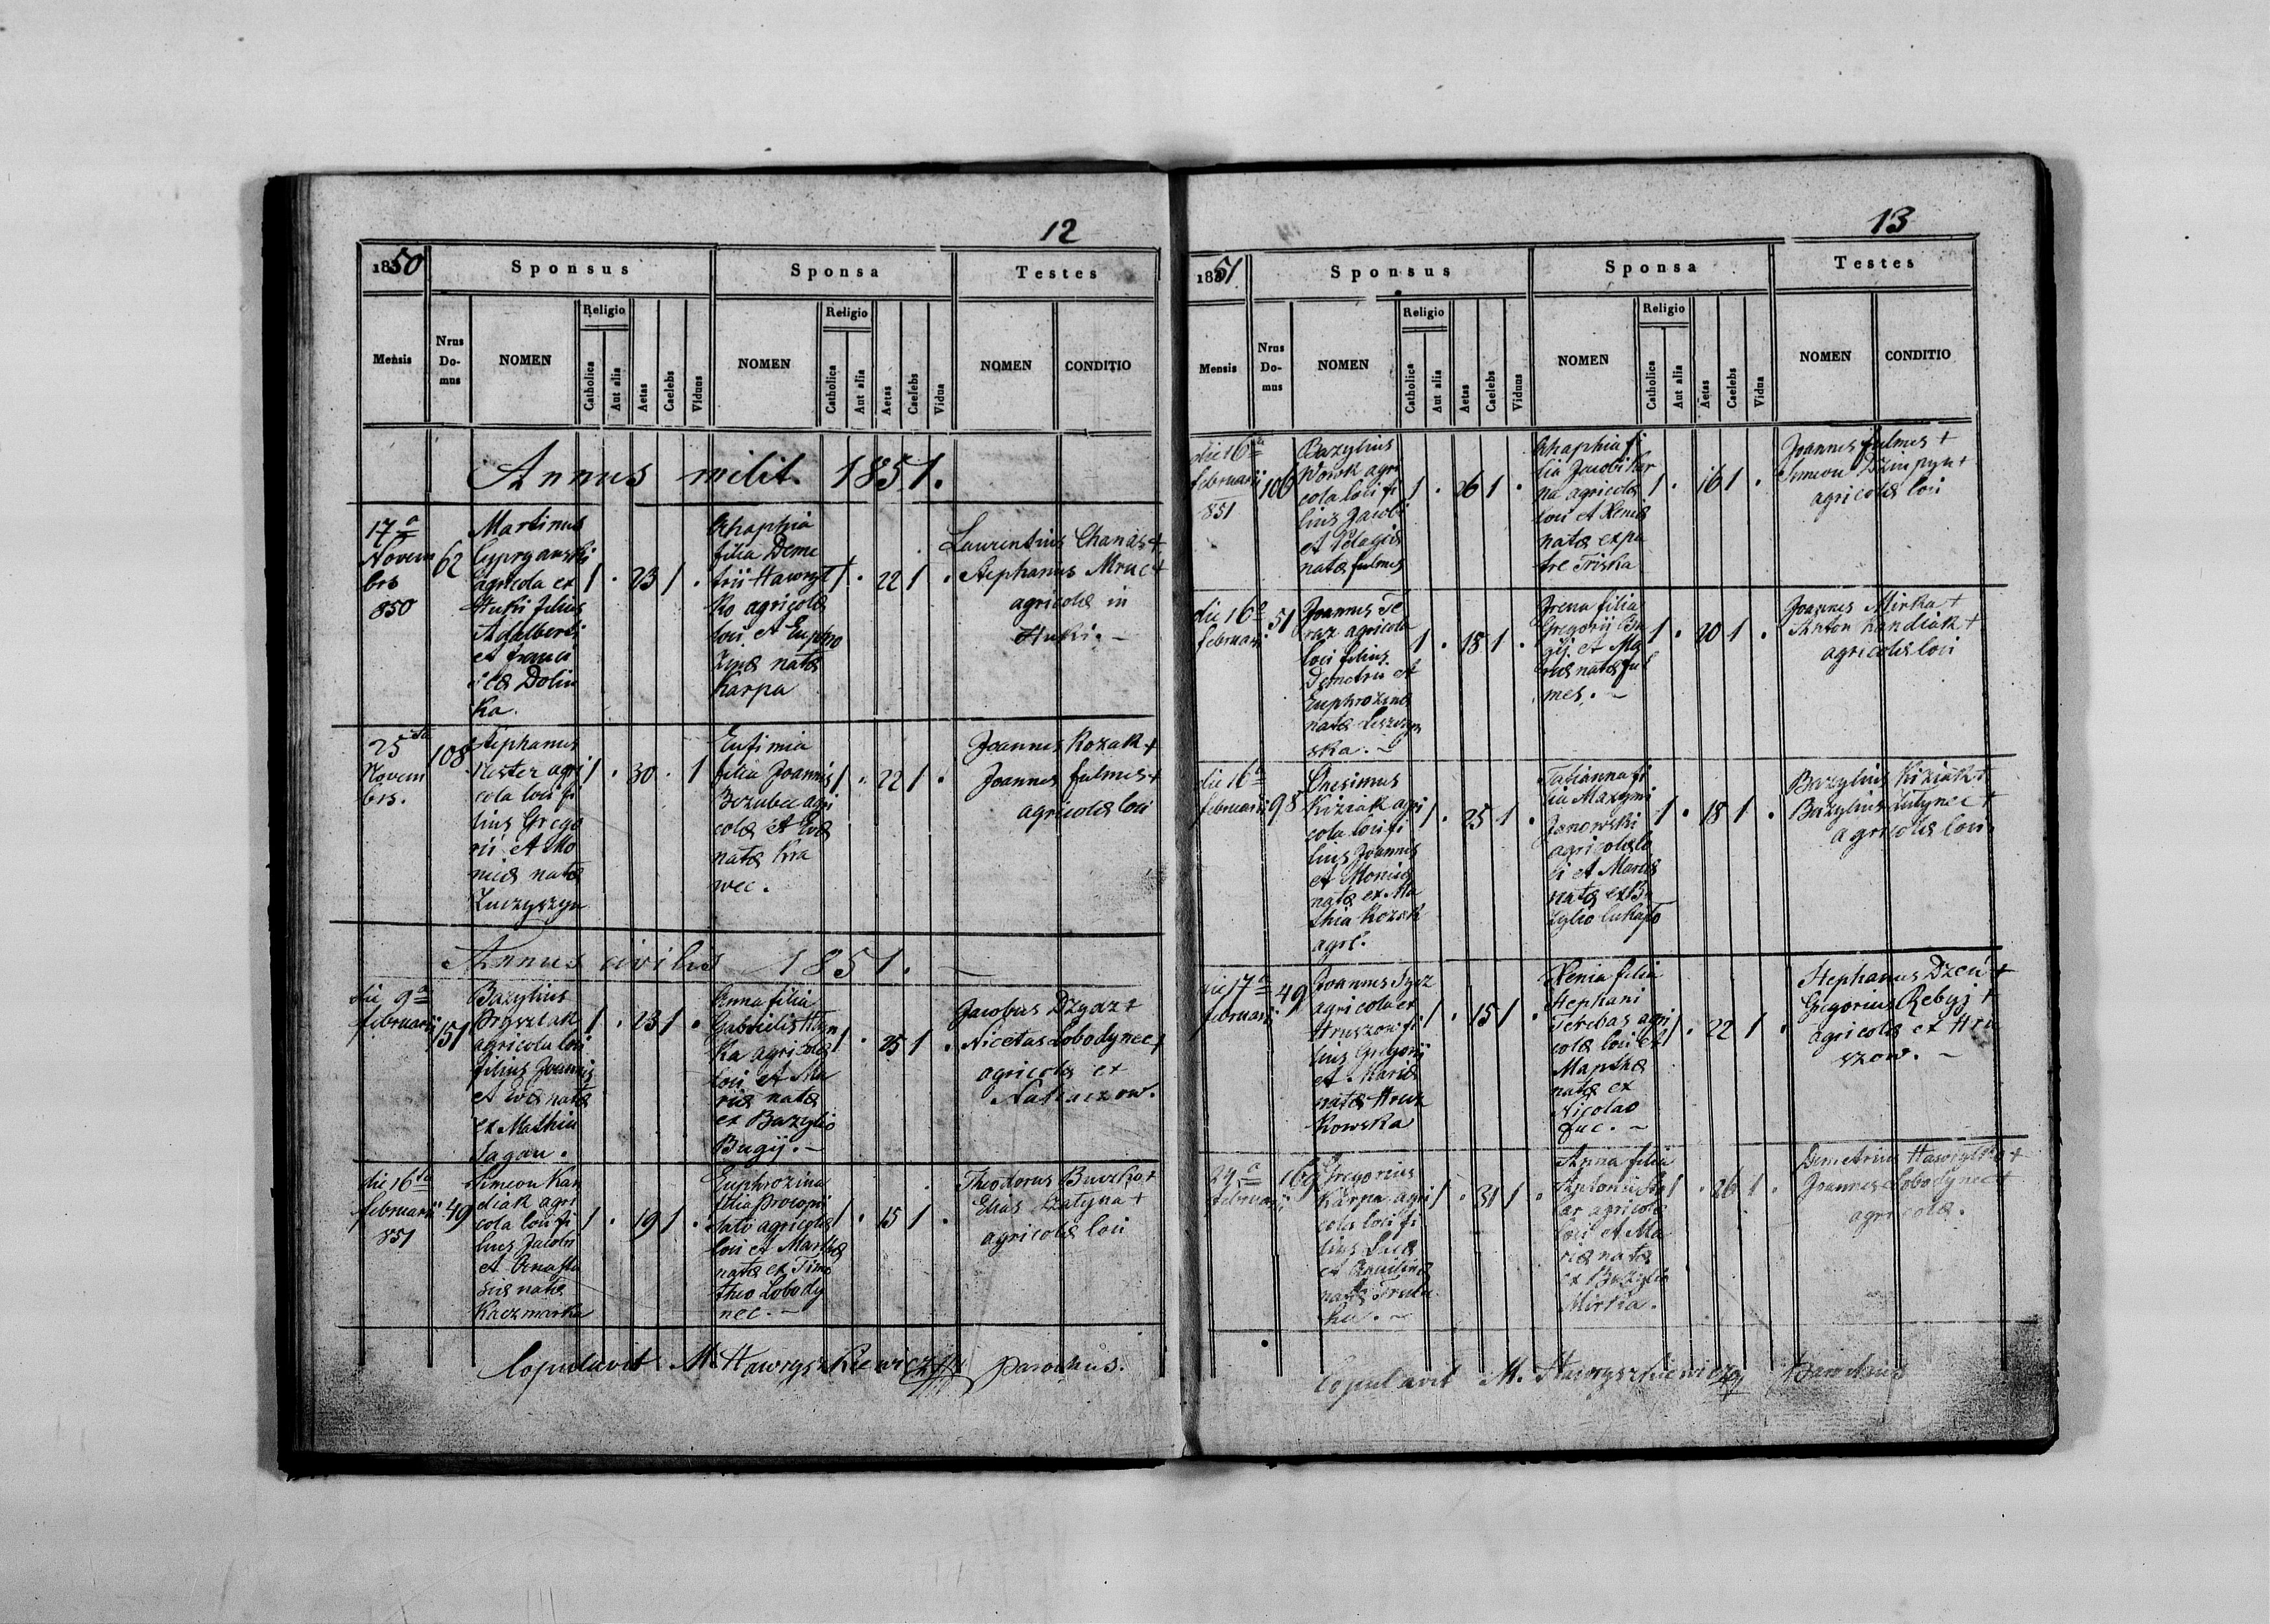 12
1850
Sponsus
Sponsa
Testes
Religio
Religio
Mensis
Nrus Domus
NOMEN
Catholica
Aut alia
Aetas
Caelebs
Viduus
NOMEN
Catholica
Aut alia
Aetas
Caelebs
Vidua
NOMEN
CONDITIO
Annus milit. 1851.
17a
Novem
bris
850
62
Martinus
Cyprganski
agricola ex
Huki filius
Adalberti
et Franci
scæ Dolin
ka.
1 . 23 1 .
Ahaphia
filia Deme
trii Hawryl
ko agricolæ
loci et Euphro
zinæ natæ
Karpa
1 . 22 1 .
Laurentius Chanas +
Stephanus Mruc +
agricolæ in
Huki. –
25ta
Novem
bris.
108
Stephanus
Nester agri
cola loci fi
lius Grego
rii et Mo
nicæ natæ
Zuczyszyn
1 . 30 . 1
Eufimia
filia Joannis
Bozubec agri
colæ et Evæ
natæ Kra
wec.
1 . 22 1 .
Joannes Kozak +
Joannes fulmes +
agricolæ loci
Annus civilis 1851. –
die 9a
februarii
151
Bazylius
Pryszlak
agricola loci
filius Joannis
et Evæ natæ
ex Mathia
Sagan.
1 . 23 1 .
Anna filia
Gabrielis Hay
ka agricolæ
loci et Ma
riæ natæ
ex Bazylio
Bugij. –
1 . 25 1 .
Jacobus Dzydz +
Nicetas Lobodynec +
agricolæ ex
Nahaczow.
die 16ta
februarii
851
49
Simeon Kan
diak agri
cola loci fi
lius Jacobi
et Anasta
siæ natæ
Kaczmarka
1 . 19 1 .
Euphrozina
filia Procopii
Sato agricolæ
loci et Marthæ
natæ ex Timo
theo Lobody
nec. –
1 . 15 1 .
Theodorus Buczko +
Elias Szatyna +
agricolæ loci
Copulavit M. Hawryszkiewicz parochus.
13
1851
Sponsus
Sponsa
Testes
Religio
Religio
Mensis
Nrus Domus
NOMEN
Catholica
Aut alia
Aetas
Caelebs
Viduus
NOMEN
Catholica
Aut alia
Aetas
Caelebs
Vidua
NOMEN
CONDITIO
die 16ta
februarii
851
106
Bazylius
Wowk agri
cola loci fi
lius Jacobi
et Pelagiæ
natæ fulmes
1 . 26 1 .
Ahaphia fi
lia Jacobi Kar
pa agricolæ
loci et Xeniæ
natæ ex pa
tre Triska
1 . 16 1 .
Joannes fulmes +
Simeon Dzinpyn +
agricolæ loci
die 16a
februarii
51
Joannes Te
raz agricola
loci filius
Demetrii et
Euphrozinæ
natæ Leszczyn
ska. –
1 . 18 1 .
Irena filia
Gregorij Bu
gij. et Ma
riæ natæ ful
mes. –
1 . 20 1 .
Joannes Mirka +
Anton Kandiak +
agricolæ loci
die 16a
februarii
98
Onesimus
Kiziak agri
cola loci fi
lius Joannis
et Monicæ
natæ ex Ma
thia Kozak
agri.
1 . 25 1 .
Tatianna fi
lia Maxymi
Janowski
agricolæ lo
ci et Mariæ
natæ ex Ba
zylio Lukasz
1 . 18 1 .
Bazylius Kiziak +
Bazylius Lutynec +
agricolæ loci.
die 17a
februarii
49
Joannes Sycz
agricola ex
Hruszow fi
lius Gregorij
et Mariæ
natæ Hrusz
kowska
1 . 15 1 .
Xenia filia
Stephani
Terebas agri
colæ loci et
Maryæ
natæ ex
Nicolao
fuc. –
1 . 22 1 .
Stephanus Dzeń +
Gregorius Rebyj +
agricolæ ex Hru
szow. –
24a
februarii
169
Gregorius
Karpa agri
cola loci fi
lius Lucæ
et Aquilinæ
natæ
1 . 31 1 .
Anna filia
agricolæ
loci et Ma
riæ natæ
ex Bazylio
Mirka.
1 . 26 1 .
Demetrius Hawrylko +
Joannes Lobodynec +
agricolæ.
Copulavit M. Hawryszkiewicz Parochus